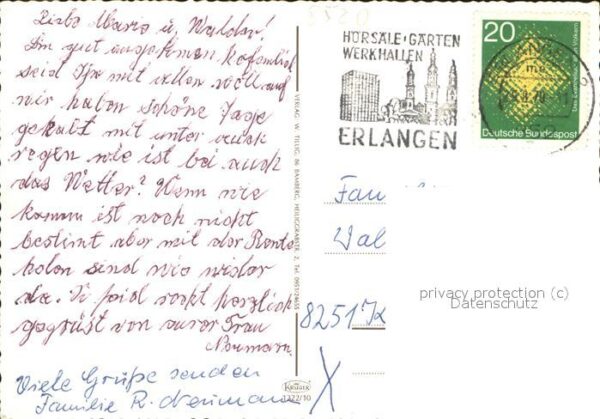 Liebe Maro u. Waldor!
Bin gut angekomen hofendlich
seid Ihr mit allen woll auf
wir haben schöne Tage
gehabt mit unter auch
regen wie ist bei auch
das Wetter? Wenn wie
komen ist noch nicht
bestimt aber mit der Rente
holen sind wie wieder
da. Ir seid recht herzlich
gegrüst von eurer Frau
Neumann.
Viele Grüße senden
Familie R. Neumann
VERLAG W. BAMBERG, HEILIGGRABSTR. 2, Tel.
KRÜGER
HÖRSÄLE·GÄRTEN
WERKHALLEN
ERLANGEN
20
Deutsche Bundespost
Fam
Wal
8251
X
privacy protection (c)
Datenschutz